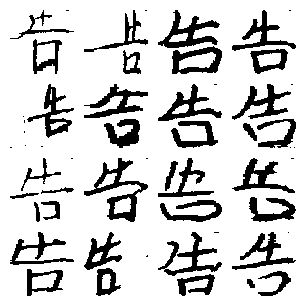 告告告告
告告告告
告告告告
告告告告